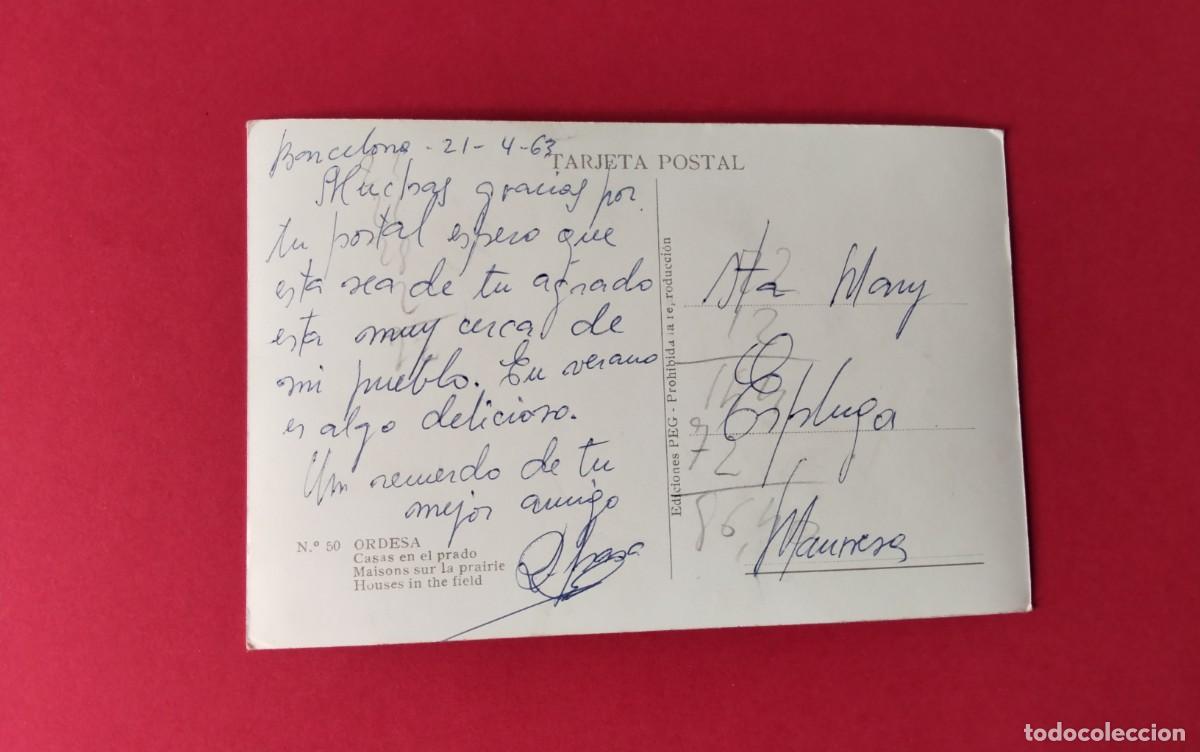 Barcelona - 21 - 4 - 63
TARJETA POSTAL
Muchas gracias por
tu postal espero que
esta sea de tu agrado
esta muy cerca de
mi pueblo. En verano
es algo delicioso.
Un recuerdo de tu
mejor amigo
N.º 50 ORDESA
Casas en el prado
Maisons sur la prairie
Houses in the field
Ediciones PEG - Prohibida la re, roducción
Sta Mary
Espluga
Manresa
12
72
todocoleccion